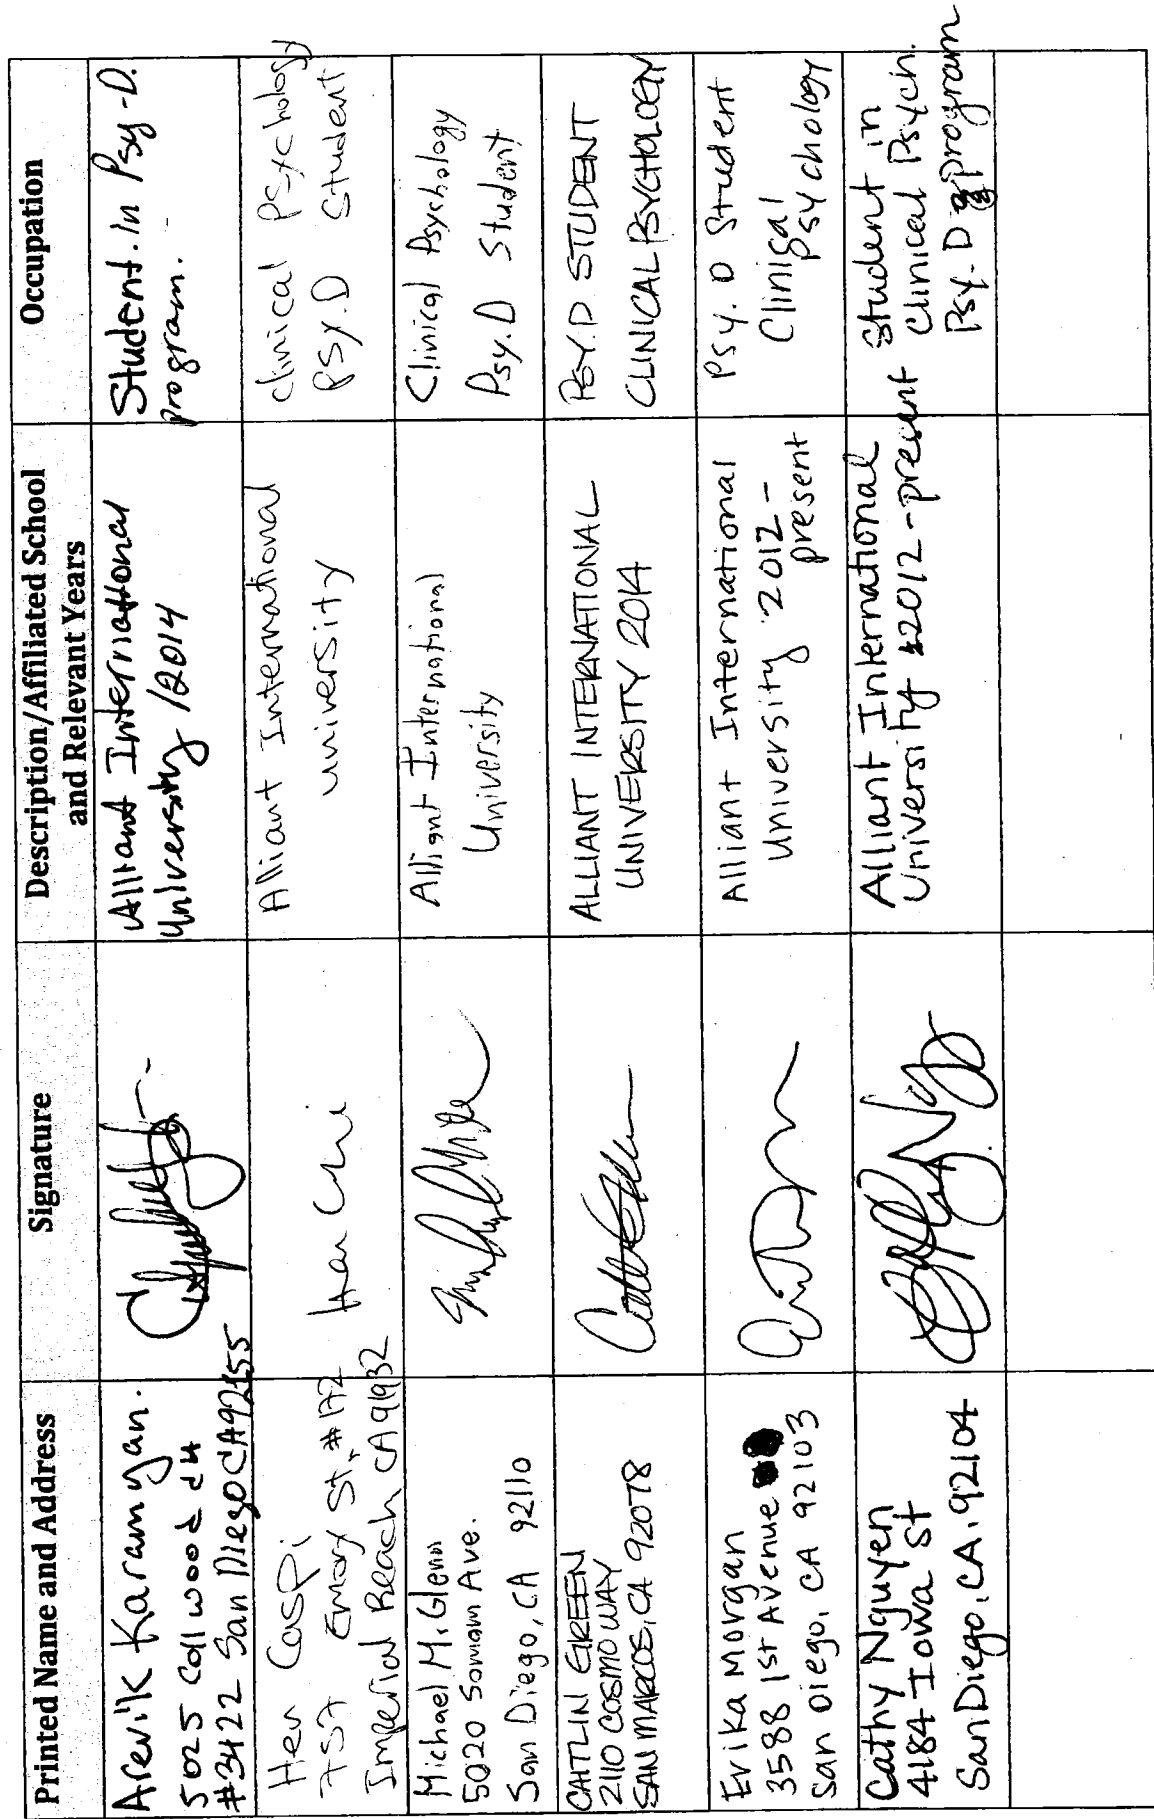 Printed Name and Address
Signature
Description/Affiliated School
and Relevant Years
Occupation
Arevik Karamyan.
5025 Collwood
#3422 San Diego CA 92155
Alliant International
University /2014
Student. In Psy-D.
program.
Hen Caspi
757 Emory St, #172
Imperial Beach CA 91932
Alliant International
university
clinical Psychology
PSY.D Student
Michael M. Glenn
5020 Ave.
San Diego, CA 92110
Alliant International
University
Clinical Psychology
Psy.D Student
CAITLIN GREEN
2110 COSMO WAY
SAN MARCOS, CA 92078
ALLIANT INTERNATIONAL
UNIVERSITY 2014
PSY.D STUDENT
CLINICAL PSYCHOLOGY
Erika Morgan
3588 1st Avenue
San Diego, CA 92103
Alliant International
University 2012 -
present
Psy. D Student
Clinical
Psychology
Cathy Nguyen
4184 Iowa St
San Diego, CA. 92104
Alliant International
University 2012 - present
Student in
Clinical Psych.
Psy. D program